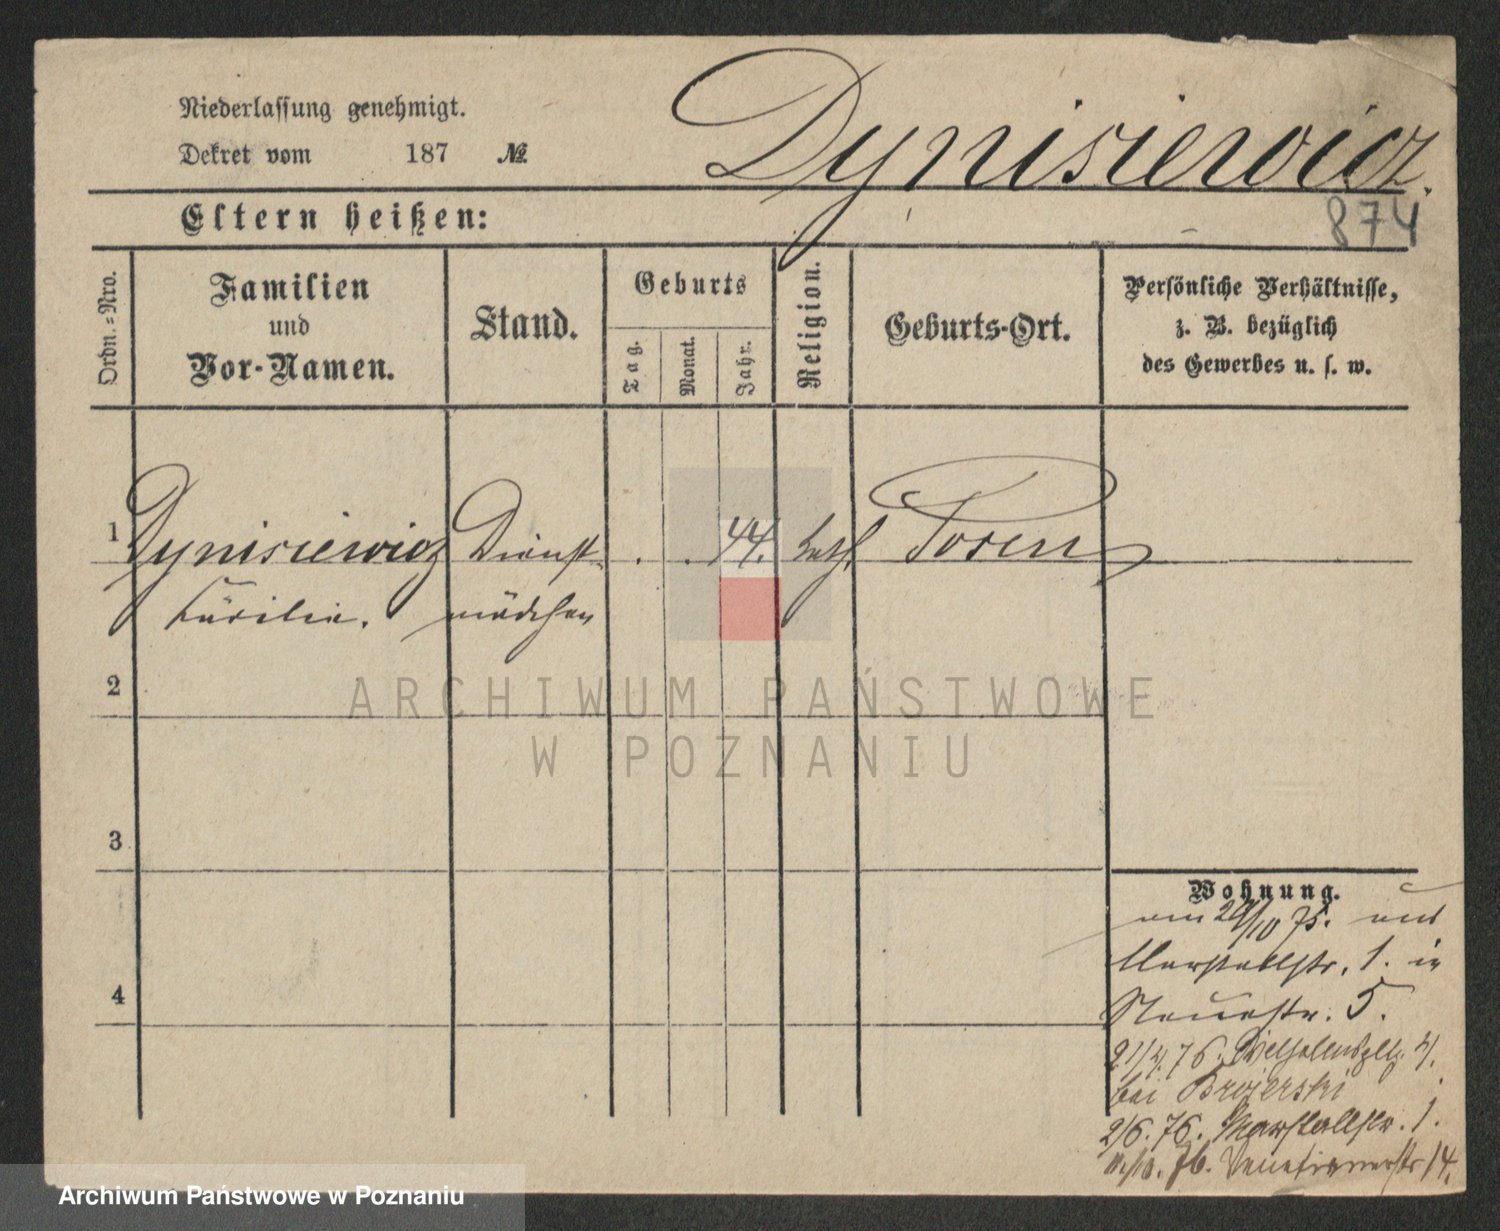 Niederlassung genehmigt.
Dekret vom 187 №
Dynisiewicz.
874
Eltern heißen:
Ordn.-Nro.
Familien
und
Vor-Namen.
Stand.
Geburts
Tag.
Monat.
Jahr.
Religion.
Geburts-Ort.
Persönliche Verhältnisse,
z. B. bezüglich
des Gewerbes u. s. w.
1 Dynisiewicz Dienst . . 44. kath. Posen
Cäcilie. mädchen
2
ARCHIWUM PAŃSTWOWE
W POZNANIU
3
Wohnung.
am /10 75. aus
Marstallstr. 1. in
Neuestr. 5.
21/4. 76. 4.
bei
2/6. 76. Marstallstr. 1.
76. Venetianerstr 14.
4
Archiwum Państwowe w Poznaniu